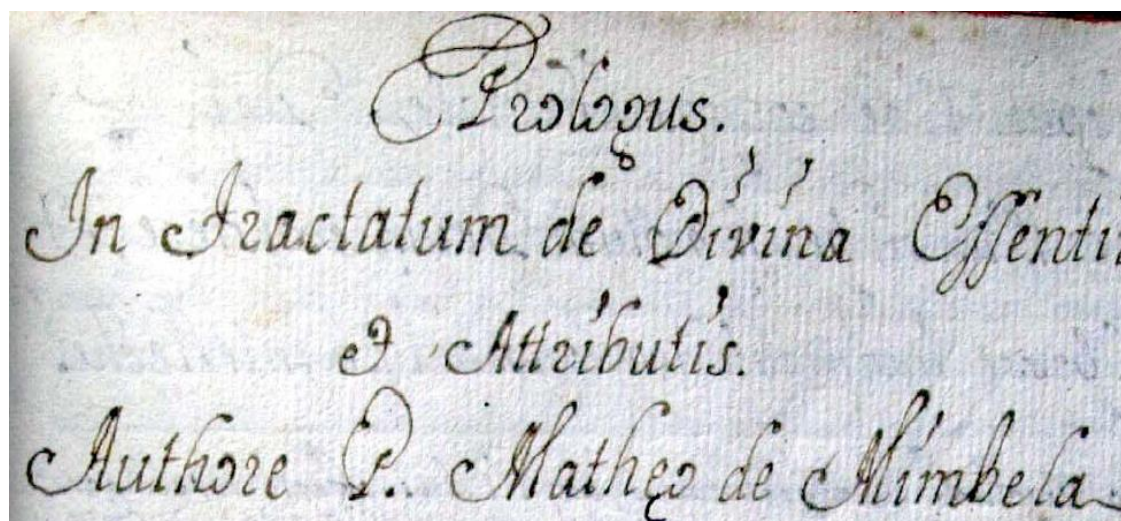 Prologus.
In Tractatum de Divina Essenti
& Attributis.
Authore P. Mathęo de Mimbela